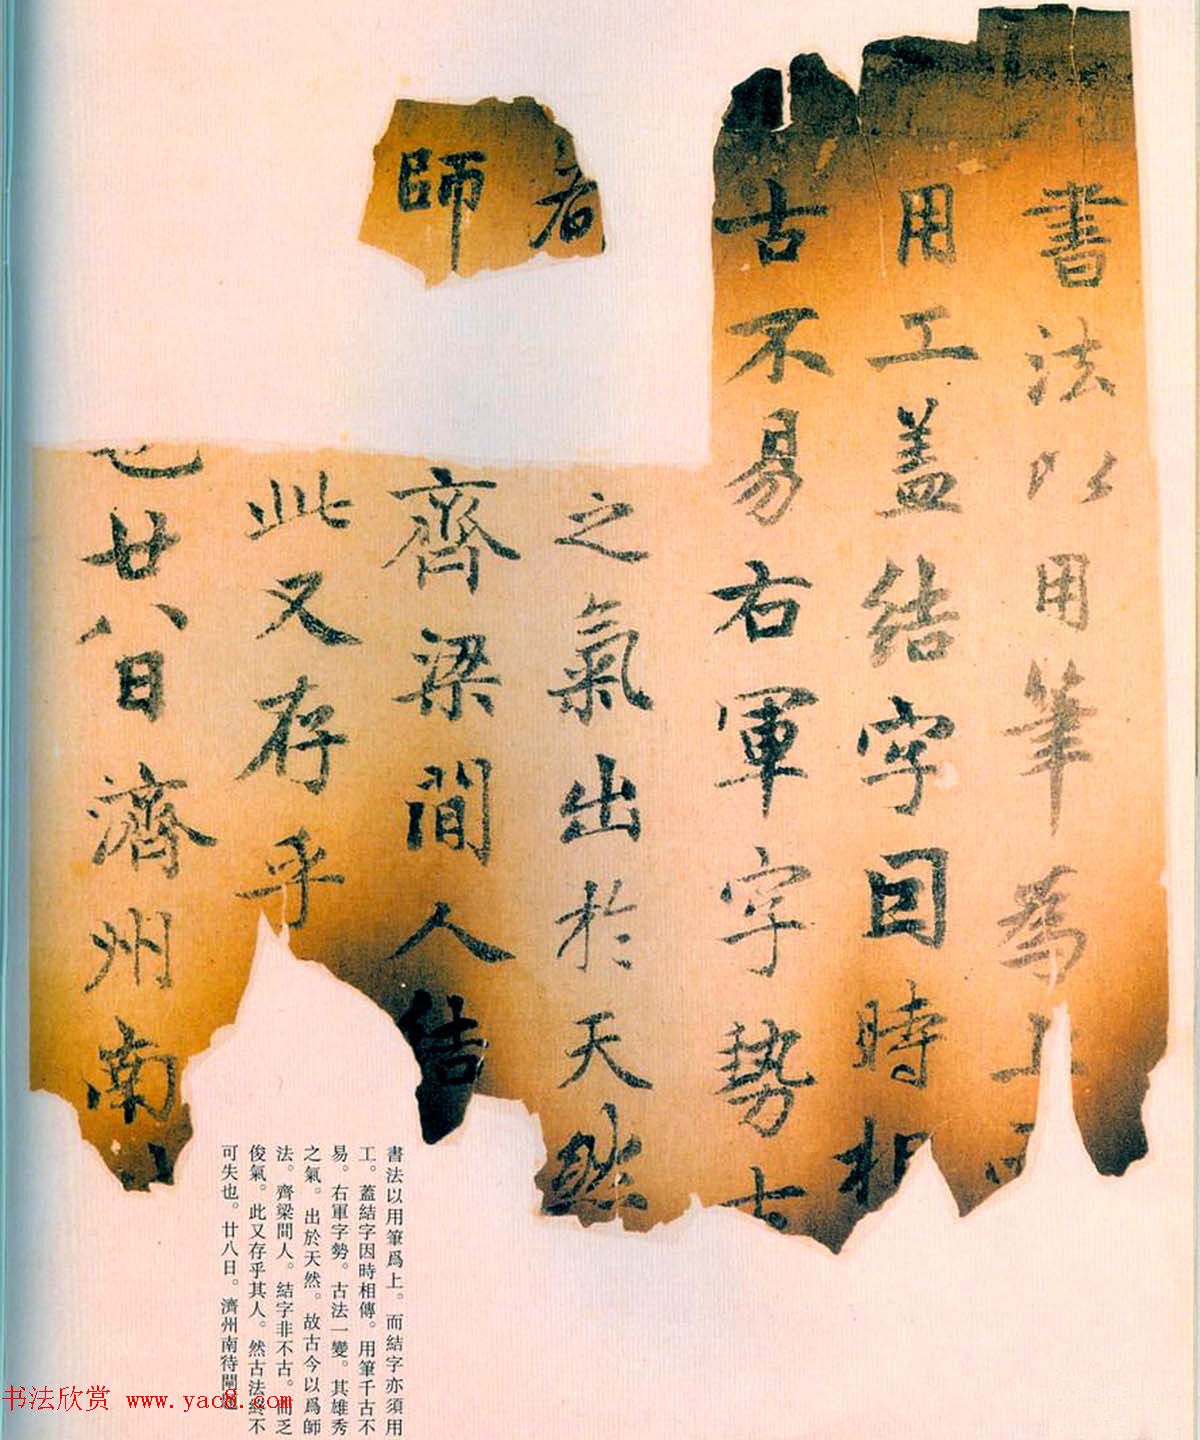 書法以用筆為上
用工蓋結字因時相
古不易右軍字勢古
者
之氣出於天然
師
齊梁間人結
此又存乎
也廿八日濟州南
書法以用筆爲上。而結字亦須用
工。蓋結字因時相傳。用筆千古不
易。右軍字勢。古法一變。其雄秀
之氣。出於天然。故古今以爲師
法。齊梁間人。結字非不古。而乏
俊氣。此又存乎其人。然古法終不
可失也。廿八日。濟州南待閘
书法欣赏 www.yac8.com